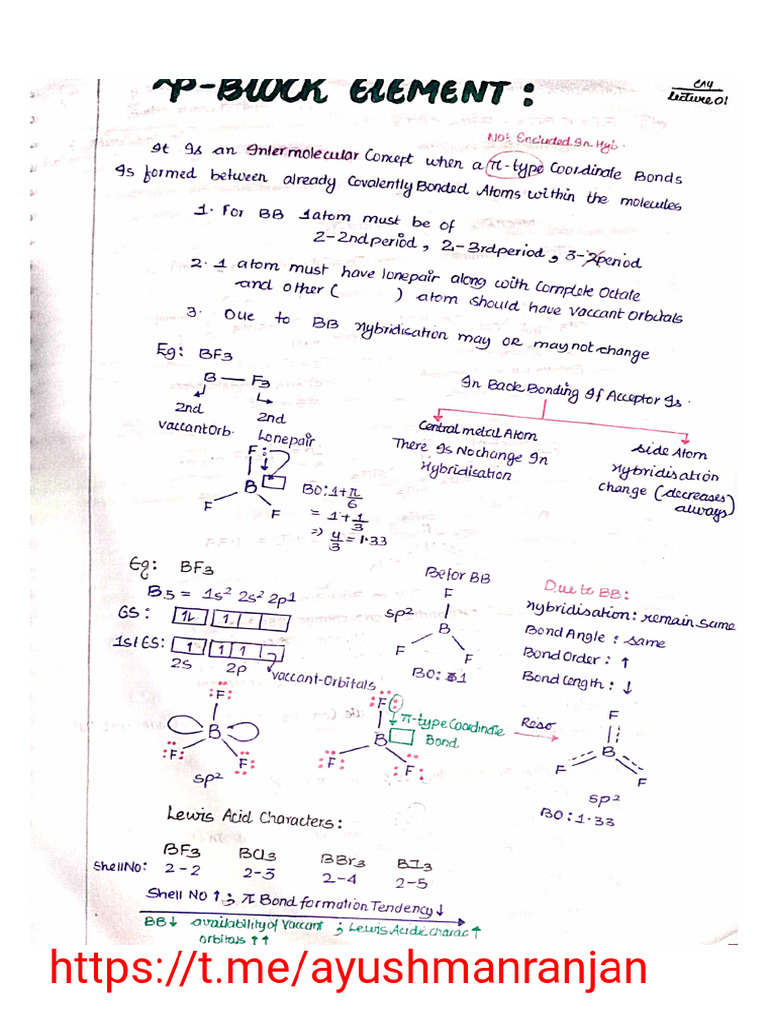 P-BLOCK ELEMENT:
Lecture 01
Not Encluded In Hyb.
It Is an Intermolecular Concept when a π-type Coordinate Bonds
Is formed between already Covalently Bonded Atoms within the molecules
1. For BB 1 atom must be of
2-2nd period, 2-3rd period, 3-2 period
2. 1 atom must have lonepair along with Complete Octate
and other ( ) atom should have vaccant orbitals
3. Due to BB hybridisation may OR may not change
Eg: BF3
B — F3
2nd
vaccant Orb.
2nd
Lonepair
F:
B
F
F
BO: 1+π/6
= 1+1/3
=> 4/3 = 1.33
In Back Bonding If Acceptor Is.
Central metal Atom
There Is No change In
Hybridisation
Side Atom
Hybridisation
change (decreases)
always
Eg: BF3
B5 = 1s² 2s² 2p1
GS: 1L 1
1st ES: 1 1 1
2s 2p
vaccant-Orbitals
Befor BB
sp²
F
B
F
F
BO: 1
Due to BB:
Hybridisation: remain same
Bond Angle: same
Bond Order: ↑
Bond Length: ↓
:F:
B
:F:
F:
sp²
:F:
π-type Coordinate
Bond
B
:F:
:F:
Reso
F
B
F
F
sp²
BO: 1.33
Lewis Acid Characters:
BF3 BCl3 BBr3 BI3
Shell No: 2-2 2-3 2-4 2-5
Shell No ↑ ; π Bond formation Tendency ↓
BB↓ availability of vaccant ; Lewis Acidic charac ↑
orbitals ↑↑
https://t.me/ayushmanranjan